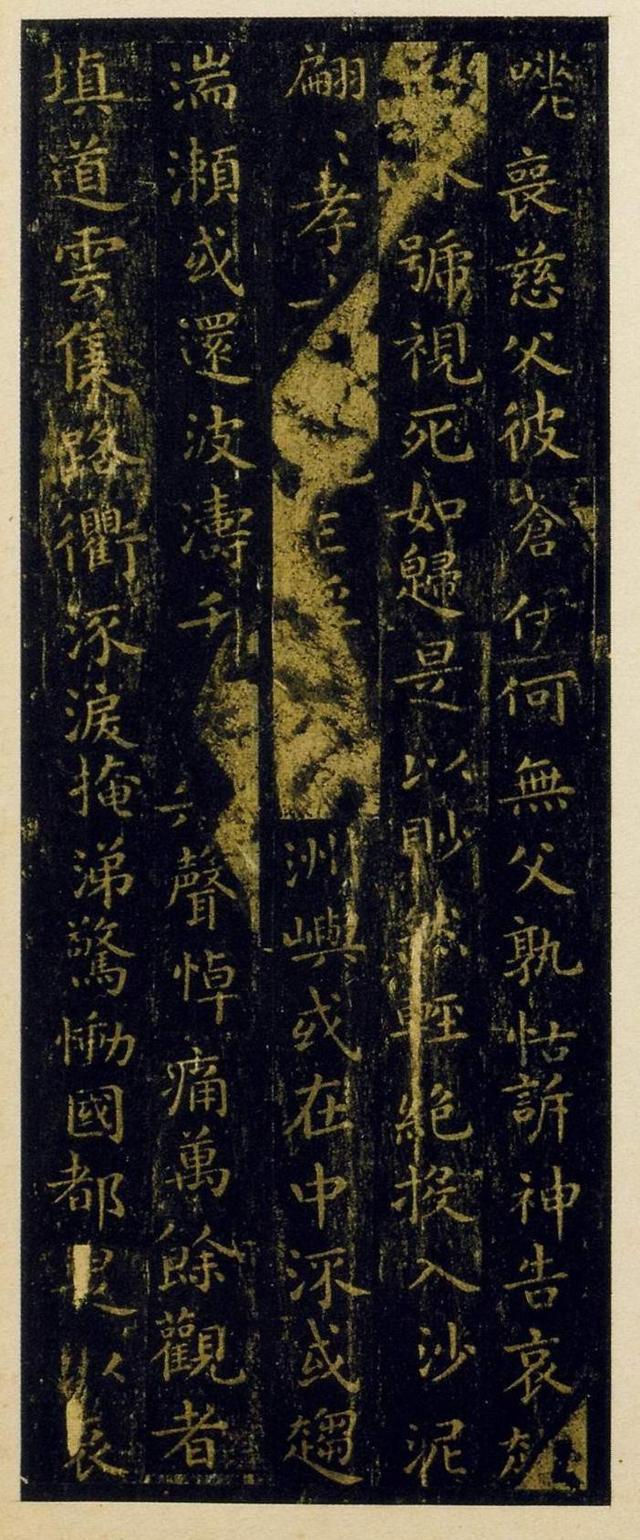 咷喪慈父彼蒼伊何無父孰怙訴神告哀
永號視死如歸是以眇然輕絕投入沙泥
翩〻孝女 洲嶼或在中流或趨
湍瀨或還波濤千 聲悼痛萬餘觀者
填道雲集路衢泺淚掩涕驚慟國都是以哀